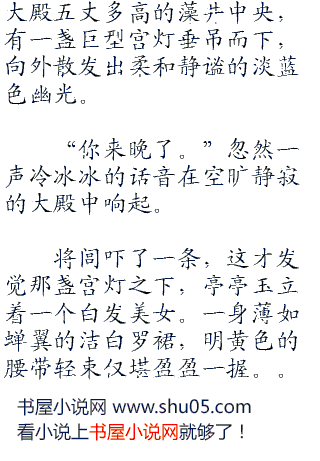 大殿五丈多高的藻井中央，
有一盏巨型宫灯垂吊而下，
向外散发出柔和静谧的淡蓝
色幽光。
“你来晚了。”忽然一
声冷冰冰的话音在空旷静寂
的大殿中响起。
将闾吓了一条，这才发
觉那盏宫灯之下，亭亭玉立
着一个白发美女。一身薄如
蝉翼的洁白罗裙，明黄色的
腰带轻束仅堪盈盈一握。。
书屋小说网 www.shu05.com
看小说上书屋小说网就够了！